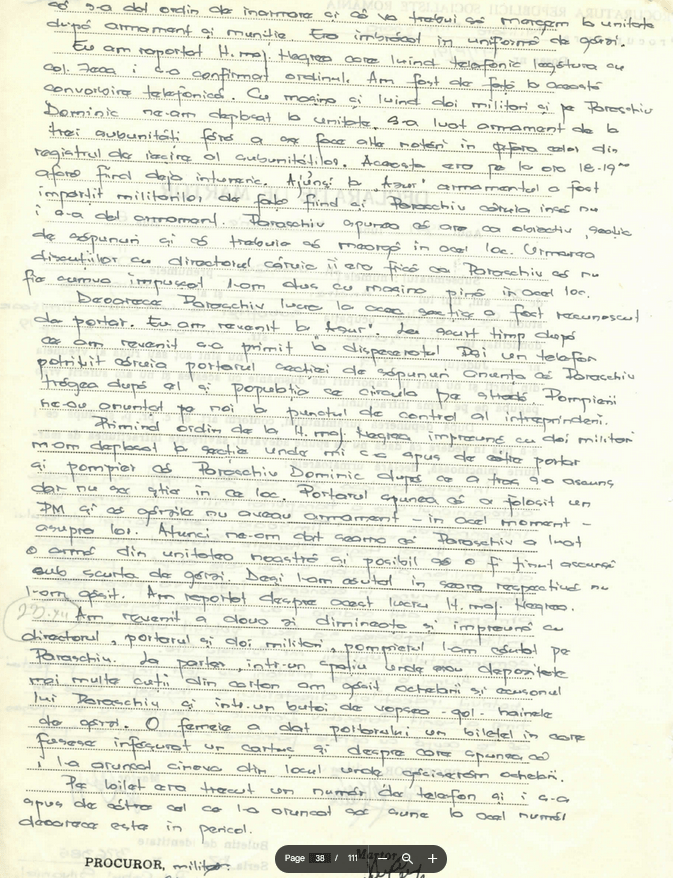 că s-a dat ordin de înarmare și că va trebui să mergem la unitate
după armament și muniție. Era îmbrăcat în uniformă de gărzi.
Eu am raportat lt. maj. Negrea care luînd telefonic legătura cu
col. i s-a confirmat ordinul. Am fost de față la această
convorbire telefonică. Cu mașina și luînd doi militari și pe Paraschiv
Dominic ne-am deplasat la unitate. S-a luat armament de la
trei subunități fără a se face alte notări în afara celor din
registrul de ieșire al subunităților. Aceasta era pe la ora 18-19⁰⁰
afară fiind deja întuneric. Ajunși la "Azur" armamentul a fost
împărțit militarilor de față fiind și Paraschiv căruia însă nu
i s-a dat armament. Paraschiv spunea că are ca obiectiv secția
de săpunuri și că trebuie să meargă în acel loc. Urmarea
discuțiilor cu directorul căruia îi era frică ca Paraschiv să nu
fie cumva împușcat l-am dus cu mașina pînă în acel loc.
Deoarece Paraschiv lucra la acea secție a fost recunoscut
de portar. Eu am revenit la "Azur". La scurt timp după
ce am revenit s-a primit la dispeceratul un telefon
potrivit căruia portarul secției de săpunuri anunța că Paraschiv
trăgea după el și populația ce circula pe stradă. Pompierii
ne-au anunțat pe noi la punctul de control al întreprinderii.
Primind ordin de la lt. maj. Negrea împreună cu doi militari
m-am deplasat la secție unde mi s-a spus de către portar
și pompier că Paraschiv Dominic după ce a tras s-a ascuns
dar nu se știa în ce loc. Portarul spunea că a folosit un
PM și că gărzile nu aveau armament - în acel moment -
asupra lor. Atunci ne-am dat seama că Paraschiv a luat
o armă din unitatea noastră și posibil să o fi ținut ascunsă
sub scurta de gărzi. Deși l-am căutat în seara respectivă nu
l-am găsit. Am raportat despre acest lucru lt. maj. Negrea.
Am revenit a doua zi dimineața și împreună cu
directorul, portarul și doi militari, pompierul l-am căutat pe
Paraschiv. La parter, într-un spațiu unde erau depozitate
mai multe cutii din carton am găsit ochelarii și
lui Paraschiv și într-un butoi de vopsea - gol - hainele
de gărzi. O femeie a dat portarului un bilețel în care
fusese înfășurat un cartuș și despre care spunea că
i l-a aruncat cineva din locul unde găsiserăm ochelarii.
Pe bilet era trecut un număr de telefon și i s-a
spus de către cel ce l-a aruncat să sune la acel număr
deoarece este în pericol.
PROCUROR, militar
Martor
Buletin de identitate
Seria
Page 38 / 111